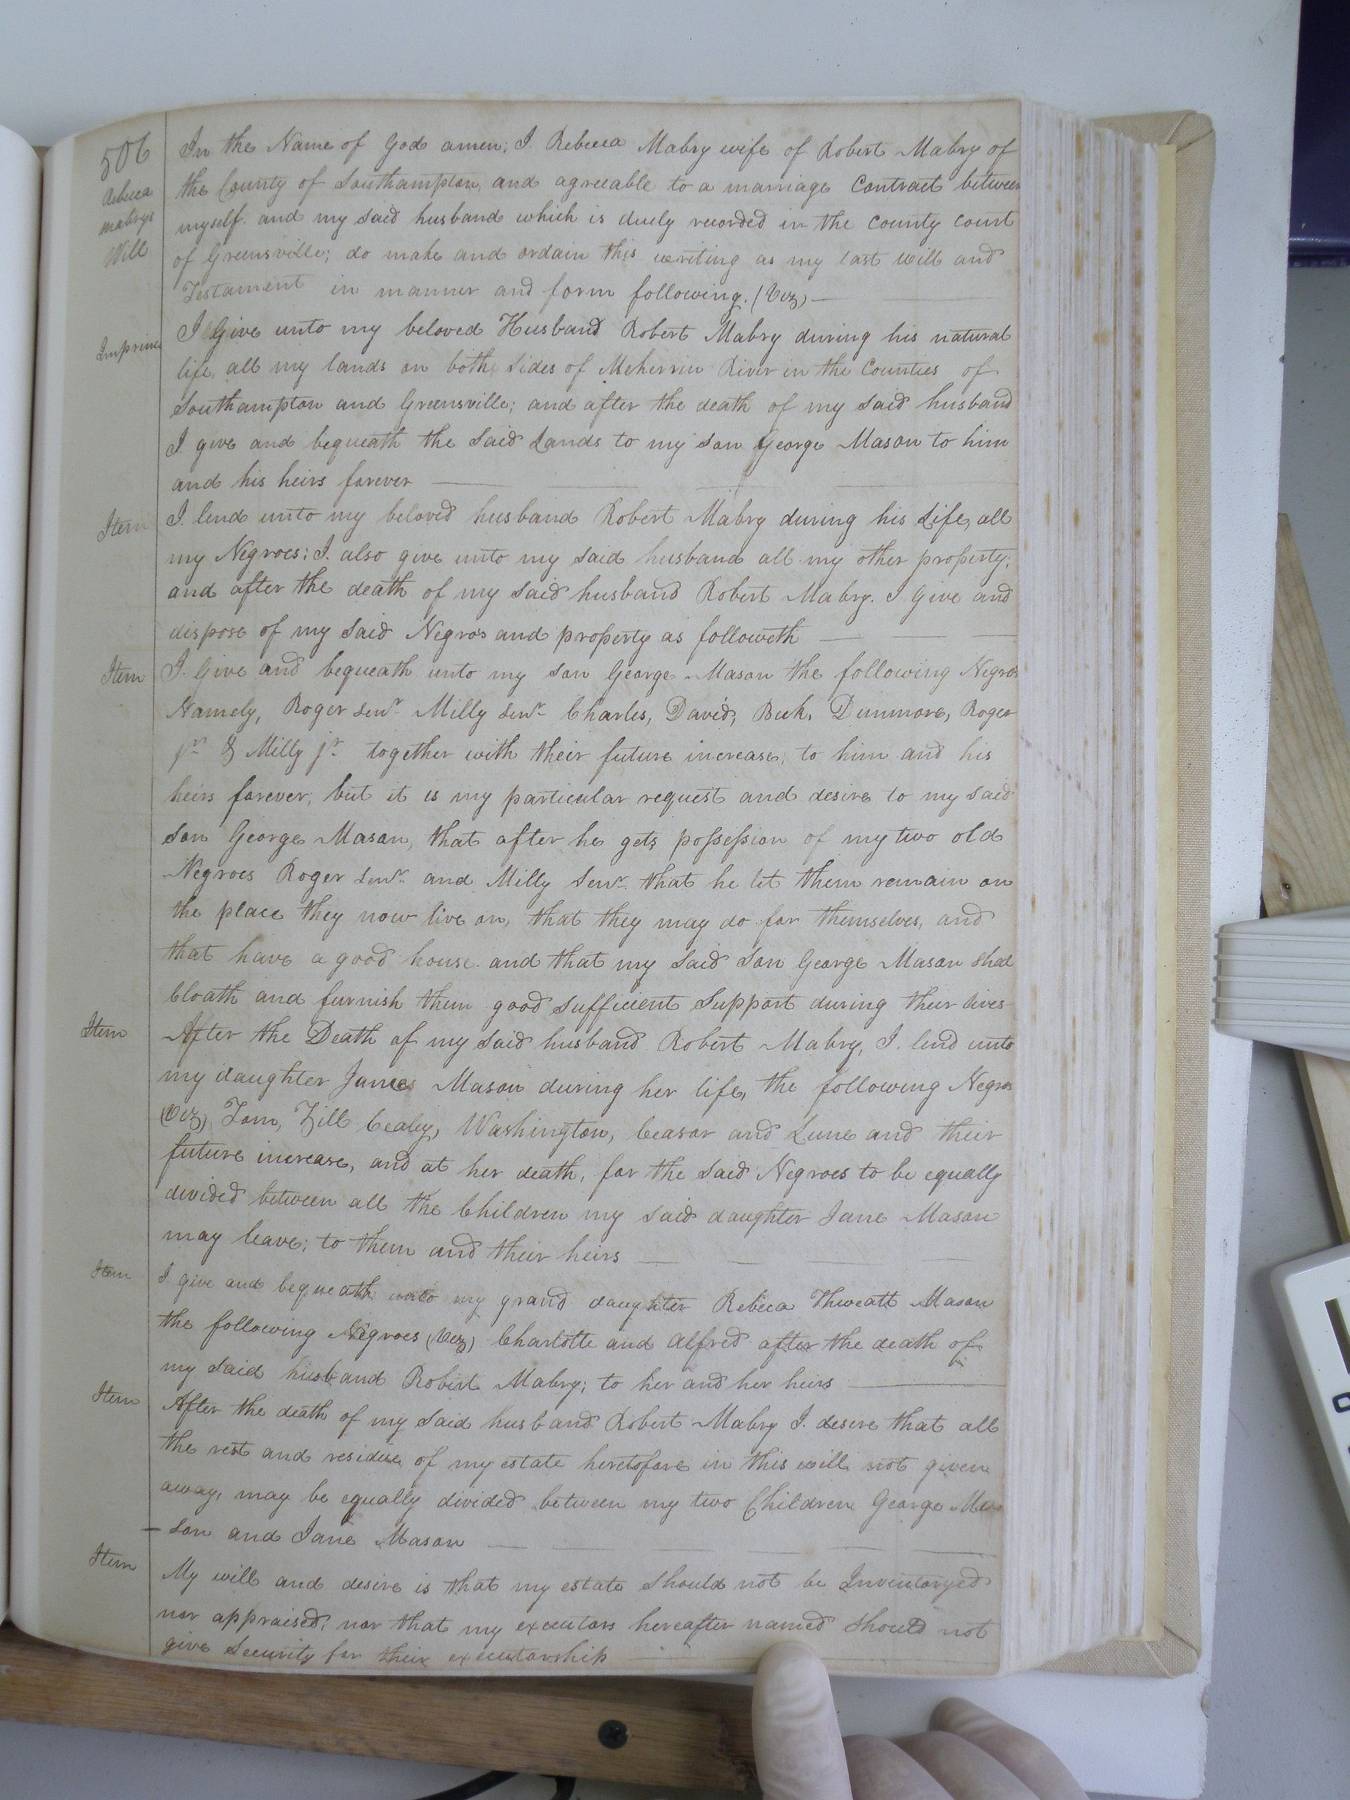 506
Rebeca
mabrys
Will
In the Name of God amen; I Rebecca Mabry wife of Robert Mabry of
the County of Southampton, and agreeable to a marriage Contract between
myself and my said husband which is duely recorded in the County Court
of Greensville; do make and ordain this writing as my last Will and
Testament in manner and form following. (Viz) —
Imprimis
I Give unto my beloved Husband Robert Mabry during his natural
life, all my lands on both Sides of Meherrin River in the Counties of
Southampton and Greensville; and after the death of my said husband
I give and bequeath the Said Lands to my son George Mason to him
and his heirs forever
Item
I lend unto my beloved husband Robert Mabry during his Life, all
my Negroes: I also give unto my said husband all my other property;
and after the death of my said husband Robert Mabry. I Give and
dispose of my said Negros and property as followeth
Item
I Give and bequeath unto my son George Mason the following Negros
Namely, Roger Senr. Milly Senr. Charles, David, Beck, Dunmore, Roger
jr. & Milly jr. together with their future increase, to him and his
heirs forever, but it is my particular request and desire to my said
son George Mason, that after he gets possession of my two old
Negroes Roger Senr. and Milly Senr. that he let them remain on
the place they now live on, that they may do for themselves, and
that have a good house and that my said son George Mason shal
Cloath and furnish them good sufficient Support during their lives
Item
After the Death of my said husband Robert Mabry, I lend unto
my daughter James Mason during her life, the following Negros
(Viz) Tom, Zill Cealy, Washington, Ceasar and Lune and their
future increase, and at her death, for the said Negroes to be equally
divided between all the Children my said daughter Jane Mason
may leave; to them and their heirs
Item
I give and bequeath unto my grand daughter Rebeca Thweatt Mason
the following Negroes (Viz) Charlotte and Alfred after the death of
my said husband Robert Mabry; to her and her heirs
Item
After the death of my said husband Robert Mabry I desire that all
the rest and residue of my estate heretofore in this will not given
away, may be equally divided between my two Children George Ma
- son and Jane Mason
Item
My will and desire is that my estate should not be Inventoryed
nor appraised; nor that my executors hereafter named should not
give Security for their executorship